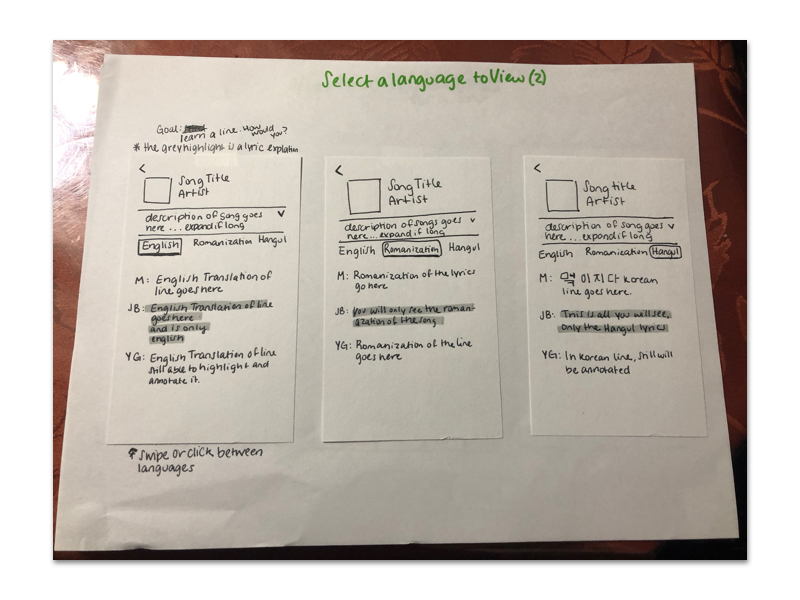 Select a language to View (2)
Goal: learn a line. How would you?
* the grey highlight is a lyric explation
<
Song Title
Artist
description of song goes v
here ... expand if long
English Romanization Hangul
M: English Translation of
line goes here
JB: English Translation of line
goes here
and is only
english
YG: English Translation of line
still able to highlight and
annotate it.
↑ swipe or click between
languages
<
Song Title
Artist
description of songs goes v
here ... expand if long
English Romanization Hangul
M: Romanization of the lyrics
go here
JB: you will only see the roman-
ization of the song
YG: Romanization of the line
goes here
<
Song title
Artist
description of song goes v
here ... expand if long
English Romanization Hangul
M: 이지다 Korean
line goes here.
JB: This is all you will see,
only the Hangul lyrics
YG: In Korean line, still will
be annotated